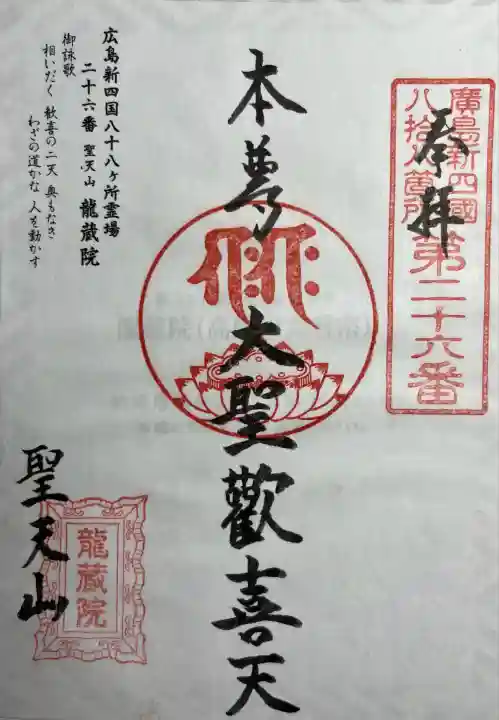 奉拝
廣島新四國
八拾八箇所
第二十六番
本尊
大聖歡喜天
広島新四国八十八ヶ所霊場
二十六番 聖天山 龍蔵院
御詠歌
相いだく 歓喜の二天 奥もなき
わざの道かな 人を動かす
聖天山
龍蔵院